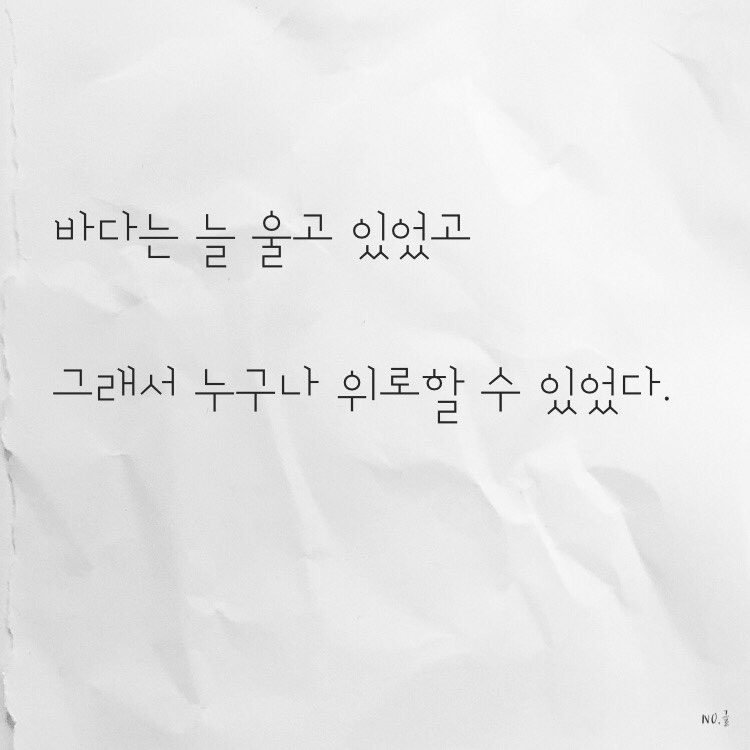 바다는 늘 울고 있었고
그래서 누구나 위로할 수 있었다.
NO.글